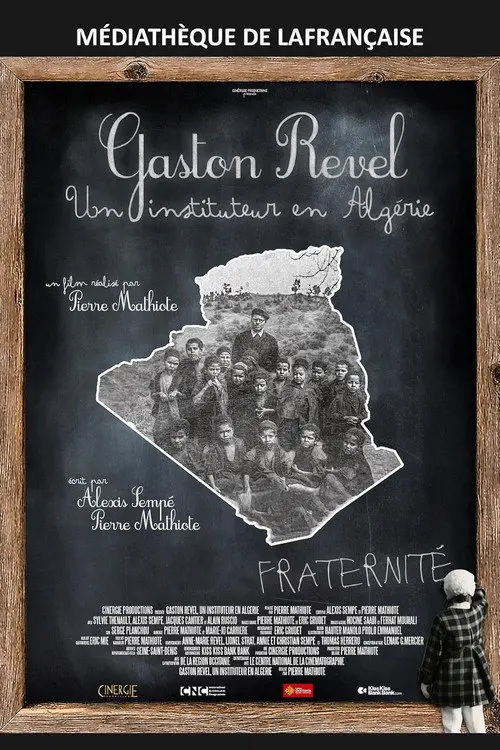 MÉDIATHÈQUE DE LAFRANÇAISE
CINERGIE PRODUCTIONS
Gaston Revel
Un instituteur en Algérie
un film réalisé par
Pierre Mathiote
écrit par
Alexis Sempé
Pierre Mathiote
FRATERNITÉ
CINERGIE PRODUCTIONS GASTON REVEL, UN INSTITUTEUR EN ALGERIE PIERRE MATHIOTE ALEXIS SEMPE PIERRE MATHIOTE
SYLVIE THENAULT, ALEXIS SEMPE, JACQUES CANTIER ALAIN RUSCIO PIERRE MATHIOTE ERIC GRUDET HOCINE SAADI FERHAT MOUHALI
SERGE PLANCHOU PIERRE MATHIOTE MARIE-JO CARRIERE ERIC GRUDET HAUTIER MANOLO PIOLO EMMANUEL
ERIC MIE PIERRE MATHIOTE ANNE-MARIE REVEL, LIONEL STRAT, ANNIE ET CHRISTIAN SEMPE THOMAS HERRERO LENAIC G.MERCIER
SEINE-SAINT-DENIS KISS KISS BANK BANK CINERGIE PRODUCTIONS PIERRE MATHIOTE
DE LA REGION OCCITANIE LE CENTRE NATIONAL DE LA CINEMATOGRAPHIE
GASTON REVEL, UN INSTITUTEUR EN ALGERIE PIERRE MATHIOTE
CINERGIE
CNC
KissKiss
BankBank.com